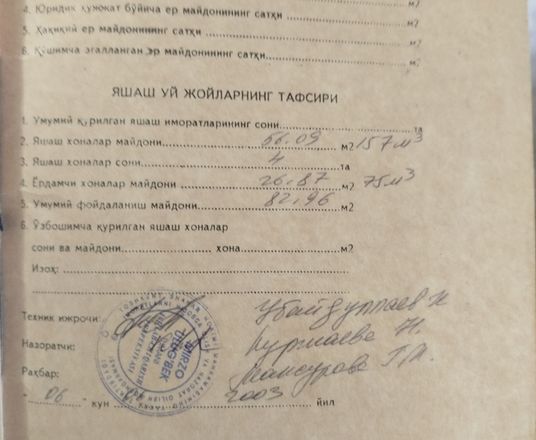 4. Юридик ҳужжат бўйича ер майдонининг сатҳи м2
5. Ҳақиқий ер майдонининг сатҳи м2
6. Қўшимча эгалланган ер майдонининг сатҳи м2
ЯШАШ УЙ ЖОЙЛАРНИНГ ТАФСИРИ
1. Умумий қурилган яшаш иморатларининг сони та
2. Яшаш хоналар майдони 56.09 м2 157 м3
3. Яшаш хоналар сони 4 та
4. Ёрдамчи хоналар майдони 26.87 м2 75 м3
5. Умумий фойдаланиш майдони 82.96 м2
6. Ўзбошимча қурилган яшаш хоналар
сони ва майдони хона м2
Изоҳ:
Техник ижрочи: Убайдуллаев
Назоратчи: Н.
Раҳбар: Мансурова Г.М.
" 06 " кун 2003 йил
MIRZO
ULUG'BEK